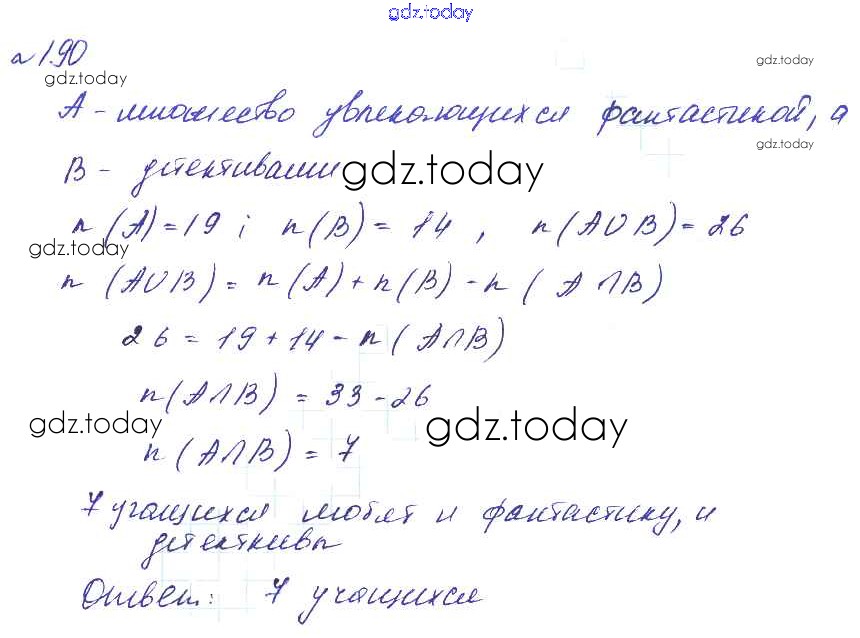 gdz.today
№190
gdz.today
gdz.today
А - множество увлекающихся фантастикой, а
gdz.today
В - детективами
gdz.today
n (A) = 19 ; n (B) = 14 , n (A∪B) = 26
gdz.today
n (A∪B) = n (A) + n (B) - n ( A ∩ B)
26 = 19 + 14 - n ( A∩B)
n (A∩B) = 33 - 26
gdz.today
gdz.today
n (A∩B) = 7
7 учащихся любят и фантастику, и
детективы
Ответ: 7 учащихся